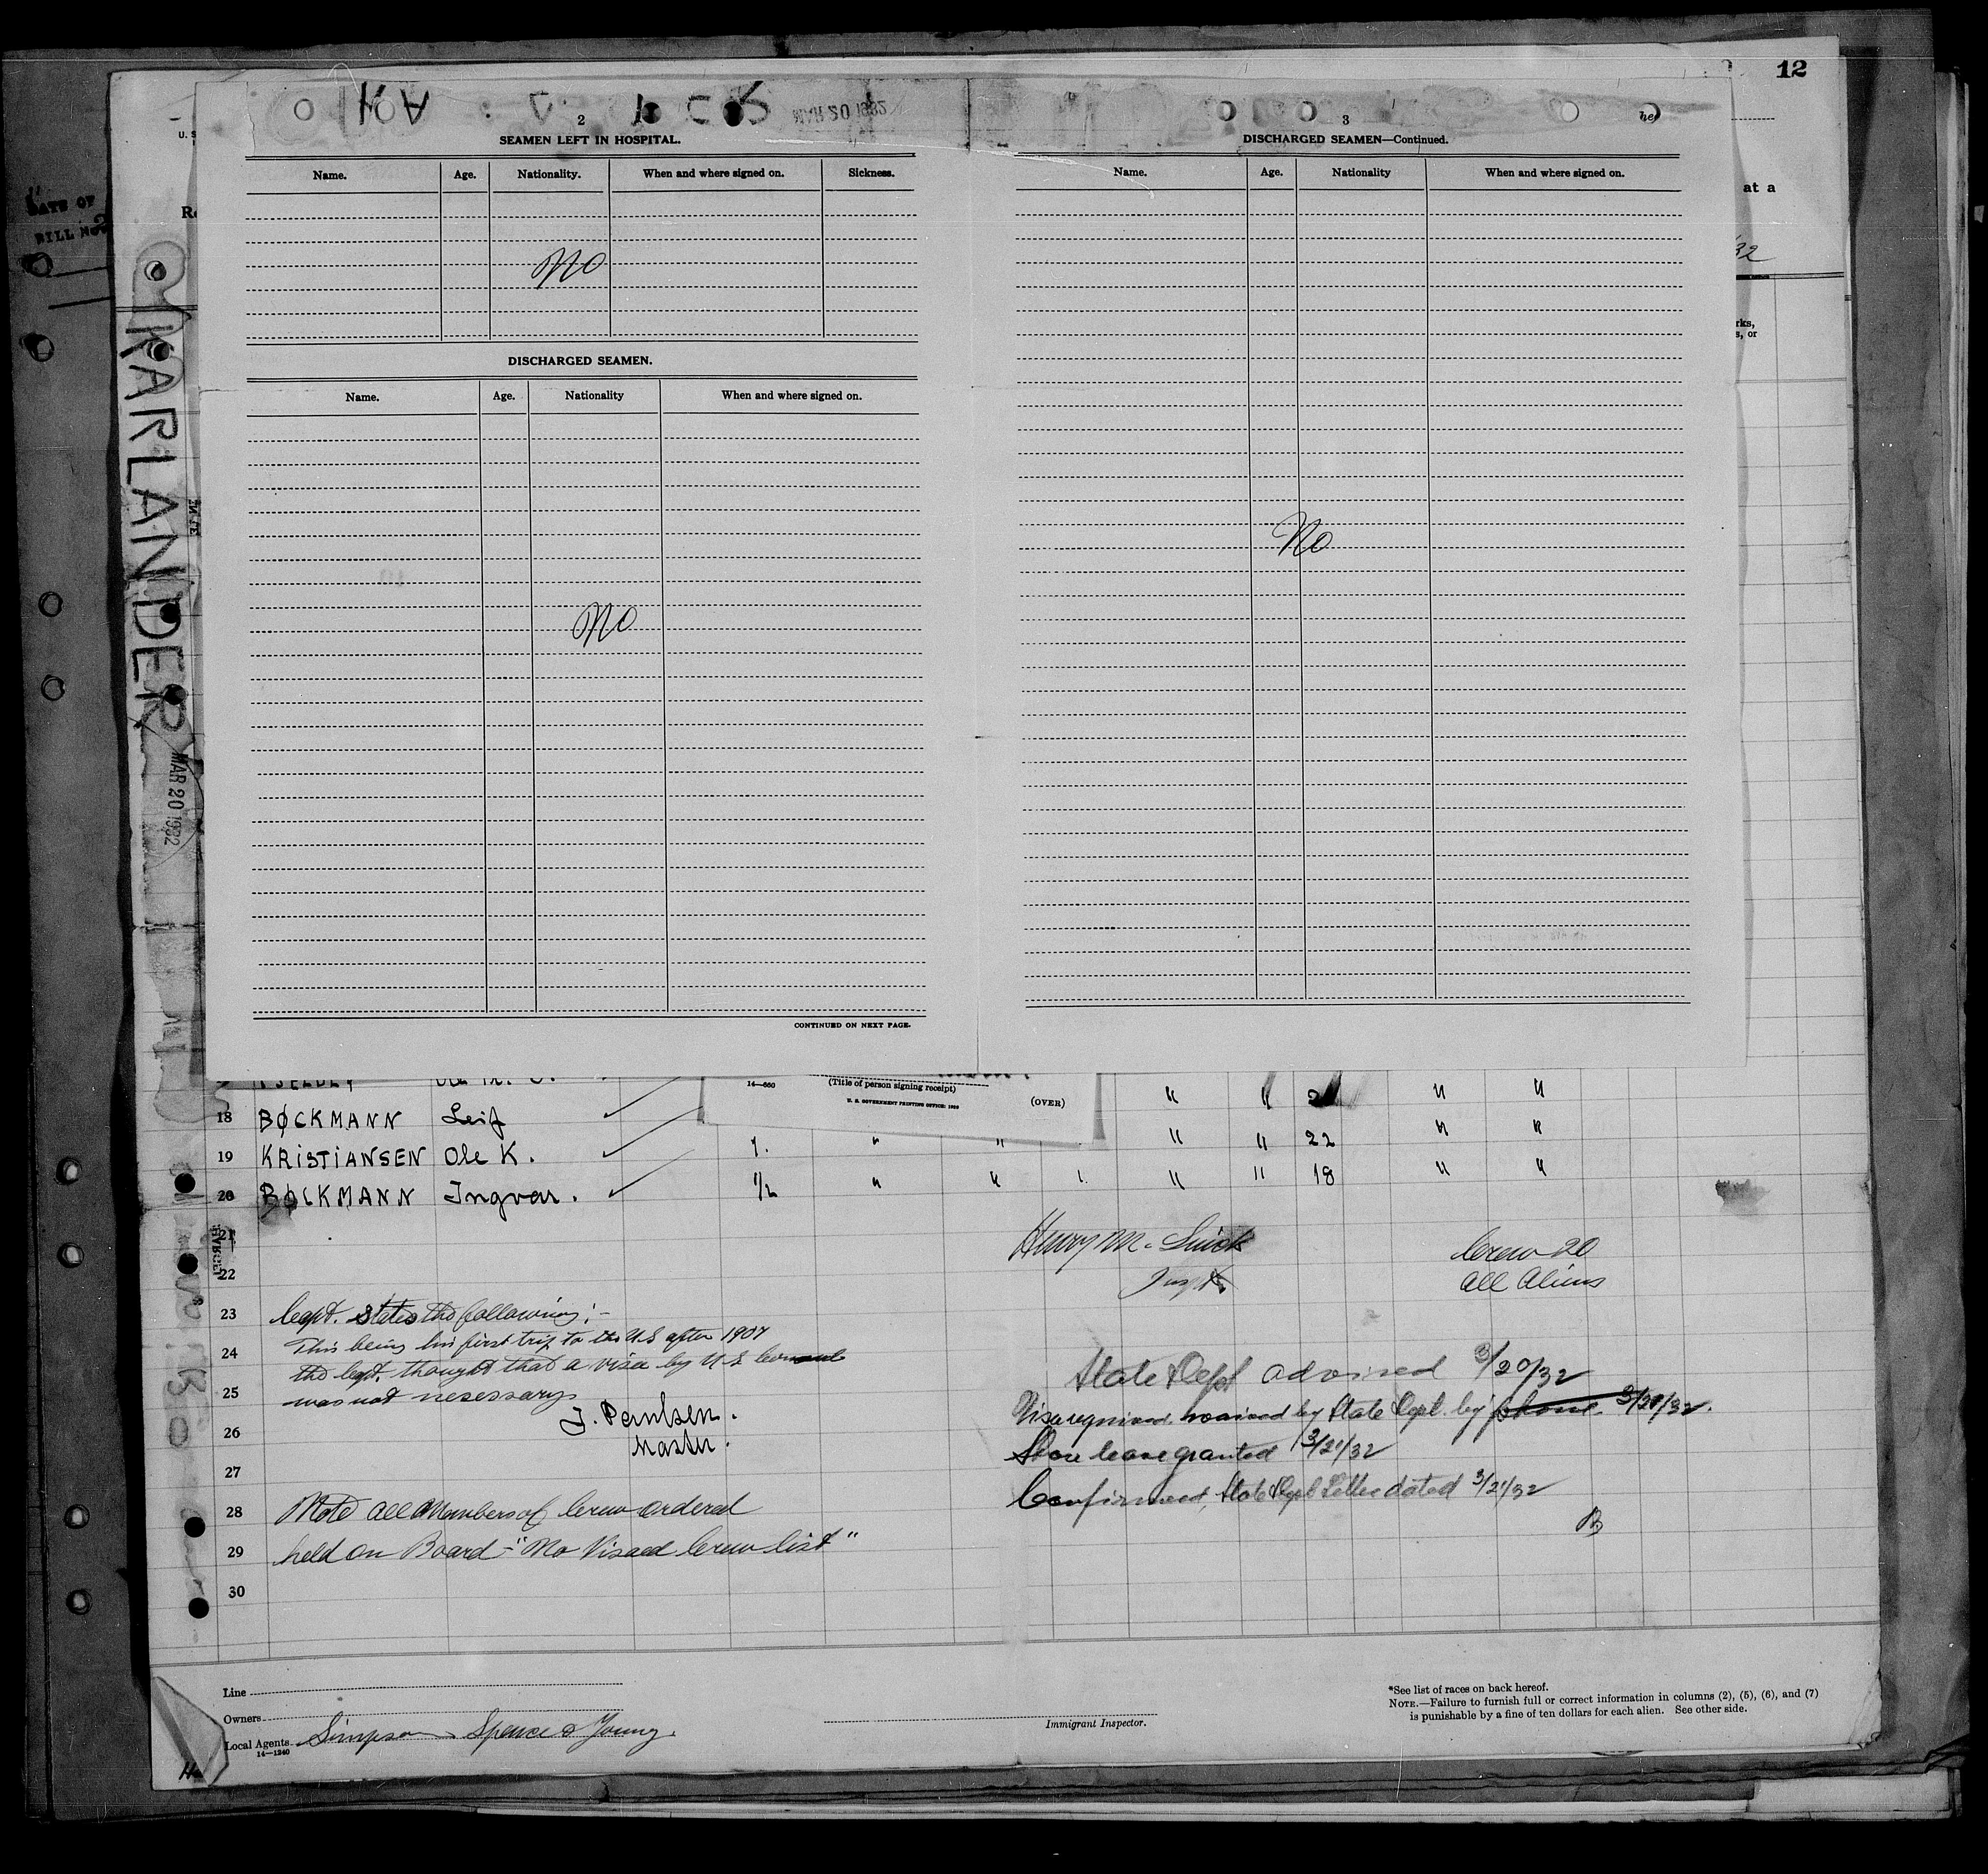 12
MAR 20 1932
2
SEAMEN LEFT IN HOSPITAL.
Name. Age. Nationality. When and where signed on. Sickness.
No
DISCHARGED SEAMEN.
Name. Age. Nationality When and where signed on.
No
CONTINUED ON NEXT PAGE.
3
DISCHARGED SEAMEN—Continued.
Name. Age. Nationality When and where signed on.
No
at a
32
rks,
s, or
U. S
Re
DATE OF
BILL NO
KARLANDER
MAR 20 1932
14—660
(Title of person signing receipt)
U. S. GOVERNMENT PRINTING OFFICE: 1929
(OVER)
" " " "
18 BØCKMANN Leif ✓ " " " 22 " "
19 KRISTIANSEN Ole K. ✓ 1. " " " " 18 " "
20 BØCKMANN Ingvar. ✓ 1/2 " "
21
22
23
24
25
26
27
28
29
30
Henry M.
Crew 20
All Aliens
Capt. states the following:—
This being his first trip to the US after 1907
the Capt. thought that a visa by U S Consul
was not nesessary
J. Paulsen.
Master.
Note all Members of Crew ordered
held on Board—"No Visaed Crew list"
State Dept advised 3/20/32
Visa required waived by State Dept. by phone 3/21/32.
Shore leave granted 3/21/32
Confirmed, State Dept Letter dated 3/21/32
Line
Owners
Local Agents Simpson Spence & Young.
14—1240
Immigrant Inspector.
*See list of races on back hereof.
NOTE.—Failure to furnish full or correct information in columns (2), (5), (6), and (7)
is punishable by a fine of ten dollars for each alien. See other side.